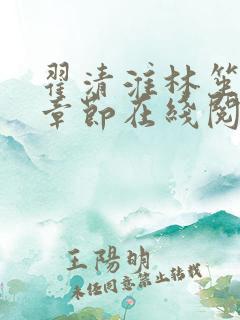 翟清淮林笫
章節在綫閱
王陽明
未經同意禁止轉載